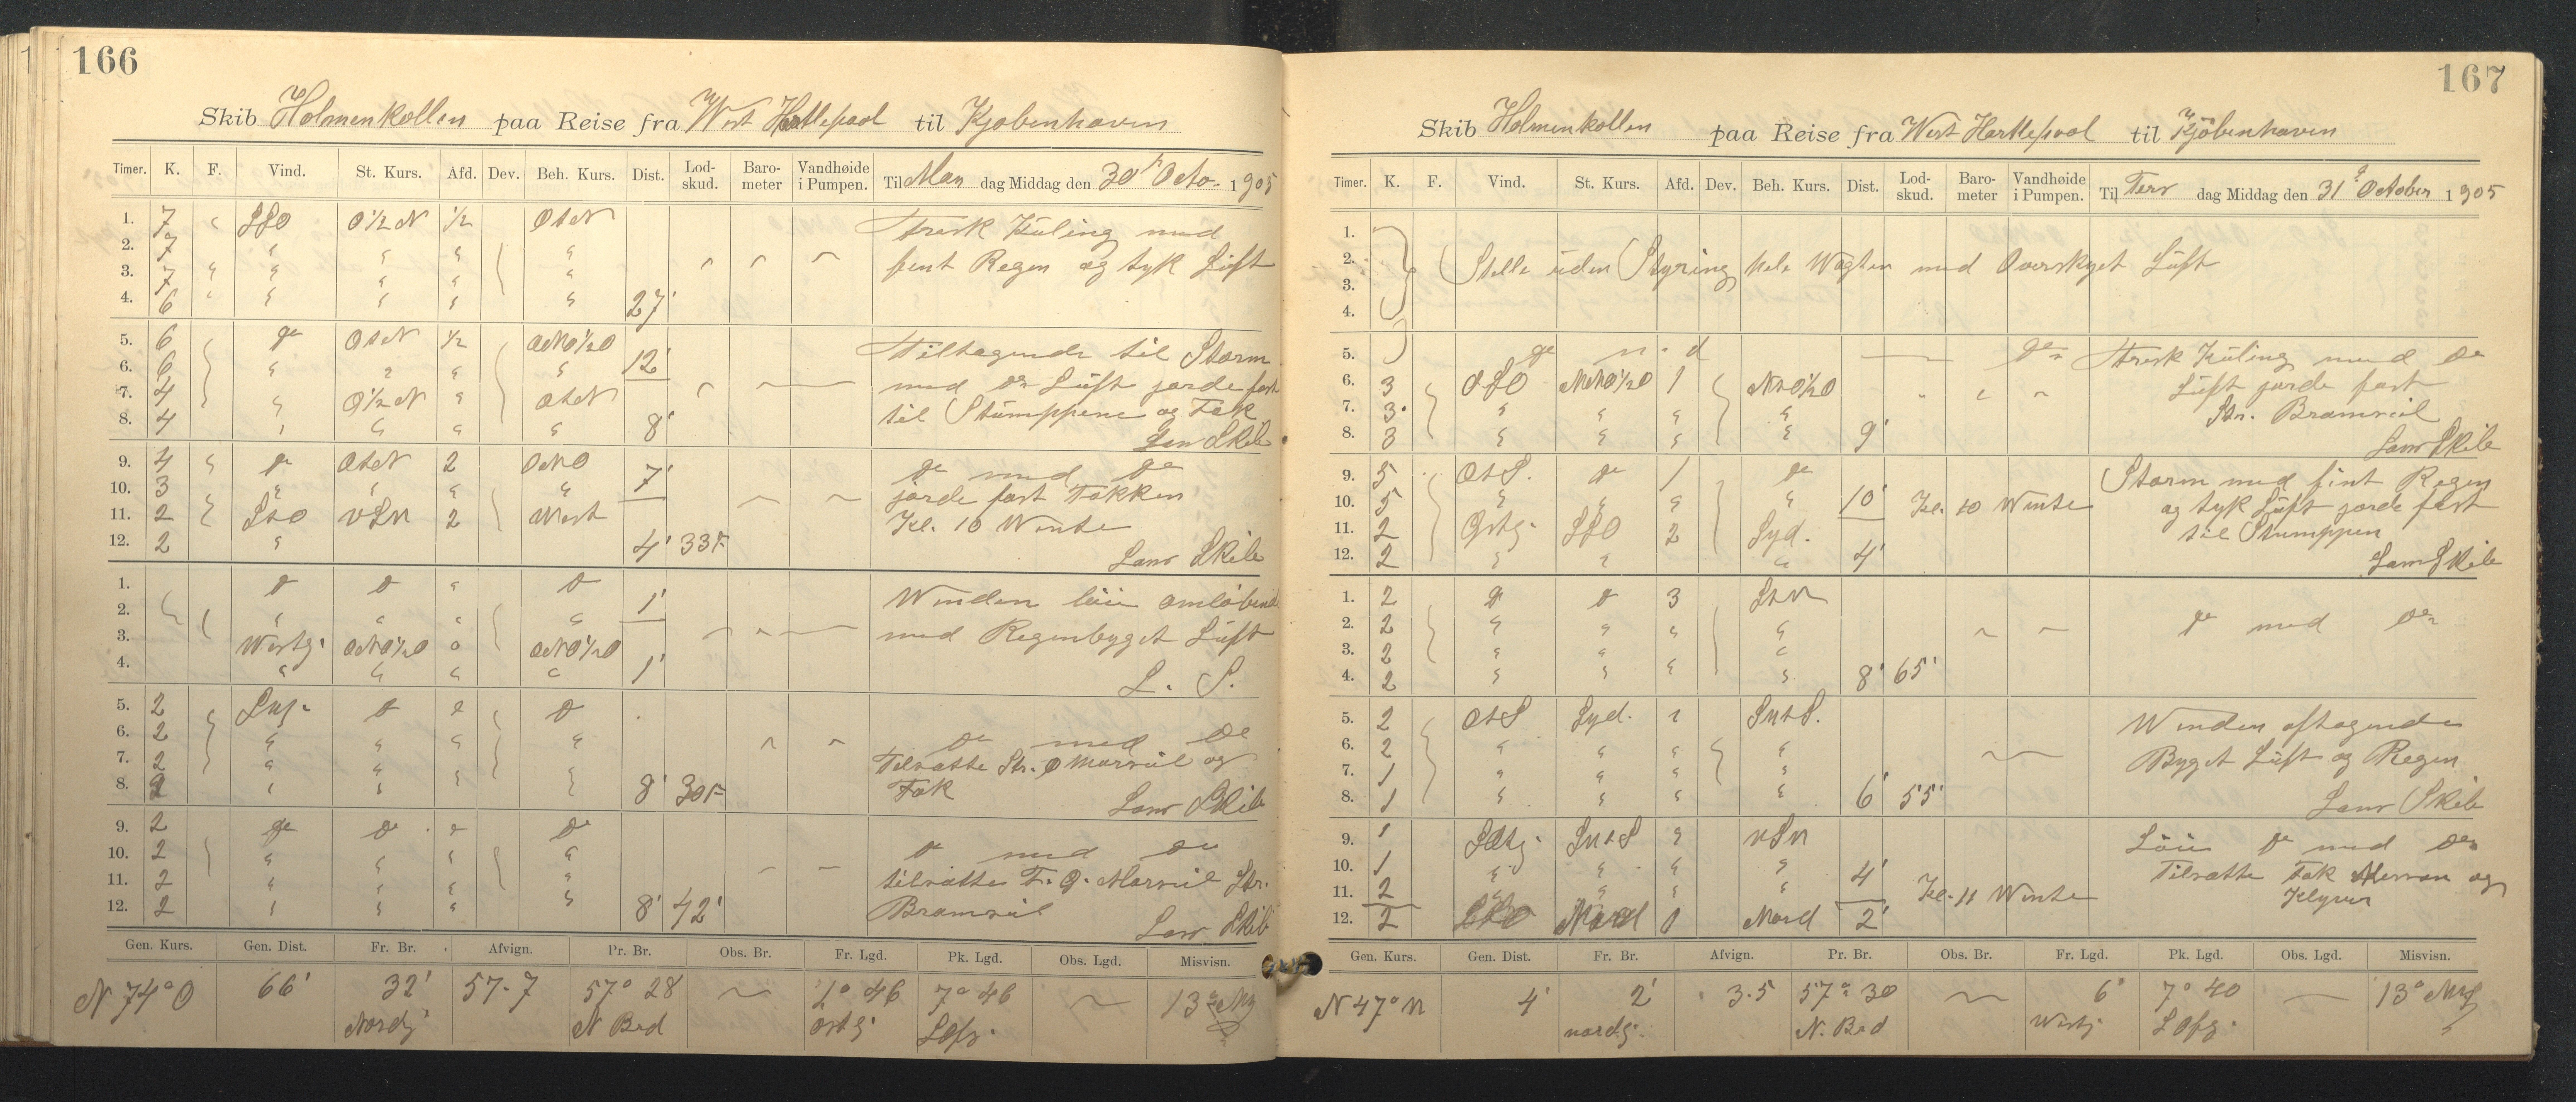 166
Skib Holmenkollen paa Reise fra West Hartlepool til Kjøbenhavn
Timer. K. F. Vind. St. Kurs. Afd. Dev. Beh. Kurs. Dist. Lod-skud. Baro-meter Vandhøide i Pumpen. Til Man dag Middag den 30' Octo. 1905
1. 7 SSO O½N ½ OtN Frisk Kuling med
2. 7
3. 7 fint Regn og tyk Luft
4. 6 27'
5. 6 do OtN ½ ONO½O Tiltagende til Storm
6. 6 12'
7. 4 O½N OtN med do Luft
8. 4 8' til Stumppene og Fok
Lans Skib
9. 4 do OtN 2 ONO 7' do med do
10. 3 jorde fast Fokken
11. 2 StO VSW 2 West Kl. 10 Wente
12. 2 4' 335
Lans Skib
1. do do do 1' Winden löie omløbende
2.
3. Westg. ONO½O 0 ONO½O med Regenbyget Luft
4. 1'
L. S.
5. 2 do do
6. 2 do med do
7. 2 Tilsatte Str. og
8. 2 8' 305 Fok
Lans Skib
9. 2 do do do
10. 2 do med do
11. 2 tilsatte Str.
12. 2 8' 42' Bramseil
Lans Skib
Gen. Kurs. Gen. Dist. Fr. Br. Afvign. Pr. Br. Obs. Br. Fr. Lgd. Pk. Lgd. Obs. Lgd. Misvisn.
N 74° O 66' 32' 57.7 57° 28 1° 46 7° 46 13°
Nordg. N Brd Ostg.
167
Skib Holmenkollen paa Reise fra West Hartlepool til Kjöbenhavn
Timer. K. F. Vind. St. Kurs. Afd. Dev. Beh. Kurs. Dist. Lod-skud. Baro-meter Vandhøide i Pumpen. Til Tirs dag Middag den 31 October 1905
1.
2. Stille uden Styring hele Wagten med Overskyet Luft
3.
4.
5. do do Frisk Kuling med do
6. 3 OSO NNO½O 1 NtO½O Luft jorde fast
7. 3 Str. Bramseil
8. 3 9'
Lans Skib
9. 5 OtS. do 1 do Storm med fint Regen
10. 5 10' Kl. 10 Wente og tyk Luft jorde fast
11. 2 Ostg. SSO 2 Syd. til Stumppen
12. 2 4'
Lans Skib
1. 2 do do 3 StW
2. 2 do med do
3. 2
4. 2 8' 65'
5. 2 OtS Syd. SWtS. Winden aftagende
6. 2
7. 1 Byget Luft og Regen
8. 1 6' 55'
Lans Skib
9. 1 SWtS VSW Löie do med do
10. 1 4' Tilsatte Fok og
11. 2 Kl. 11 Wente Klyver
12. 2 Nord 0 Nord 2'
Gen. Kurs. Gen. Dist. Fr. Br. Afvign. Pr. Br. Obs. Br. Fr. Lgd. Pk. Lgd. Obs. Lgd. Misvisn.
N 47° W 4' 2' 3.5 57° 30 6' 7° 40 13°
nordg. N. Brd Westg.